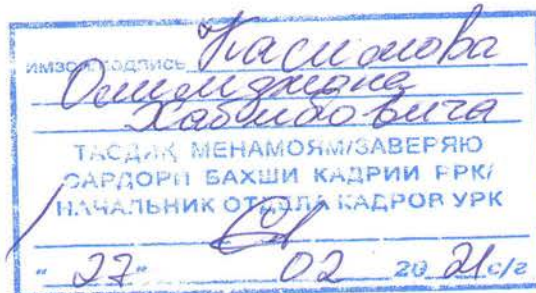 ИМЗО/ПОДПИСЬ Касимова
Олимджона
Хабибовича
ТАСДИҚ МЕНАМОЯМ/ЗАВЕРЯЮ
САРДОРИ БАХШИ КАДРИИ РРК/
НАЧАЛЬНИК ОТДЕЛА КАДРОВ УРК
"27" 02 20 21 с/г